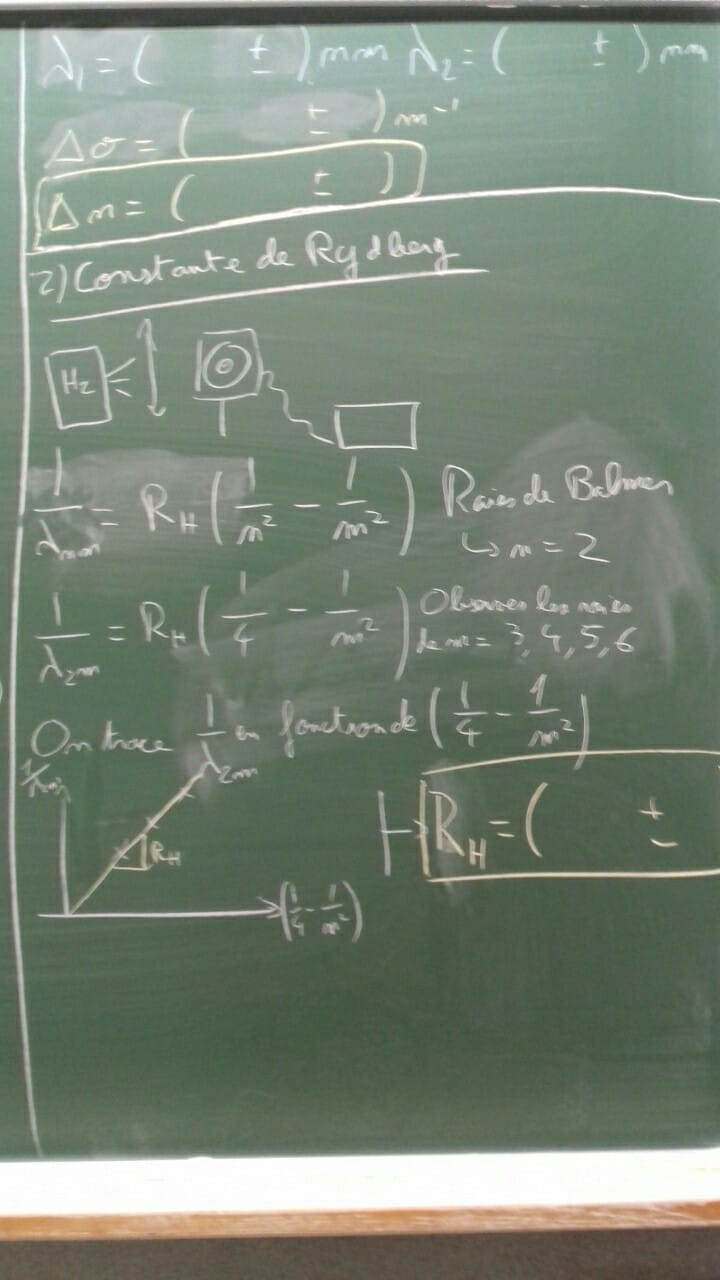 λ₁ = (     ±     ) nm   λ₂ = (     ±     ) nm
Δσ = (     ±     ) m⁻¹
Δn = (     ±     )
2) Constante de Rydberg
H₂
1/λₙₘ = R_H (1/n² - 1/m²)   Raies de Balmer
↳ n = 2
1/λ₂ₘ = R_H (1/4 - 1/m²)   Observer les raies
de m = 3, 4, 5, 6
On trace 1/λ₂ₘ en fonction de (1/4 - 1/m²)
R_H
R_H = (     ±
(1/4 - 1/m²)